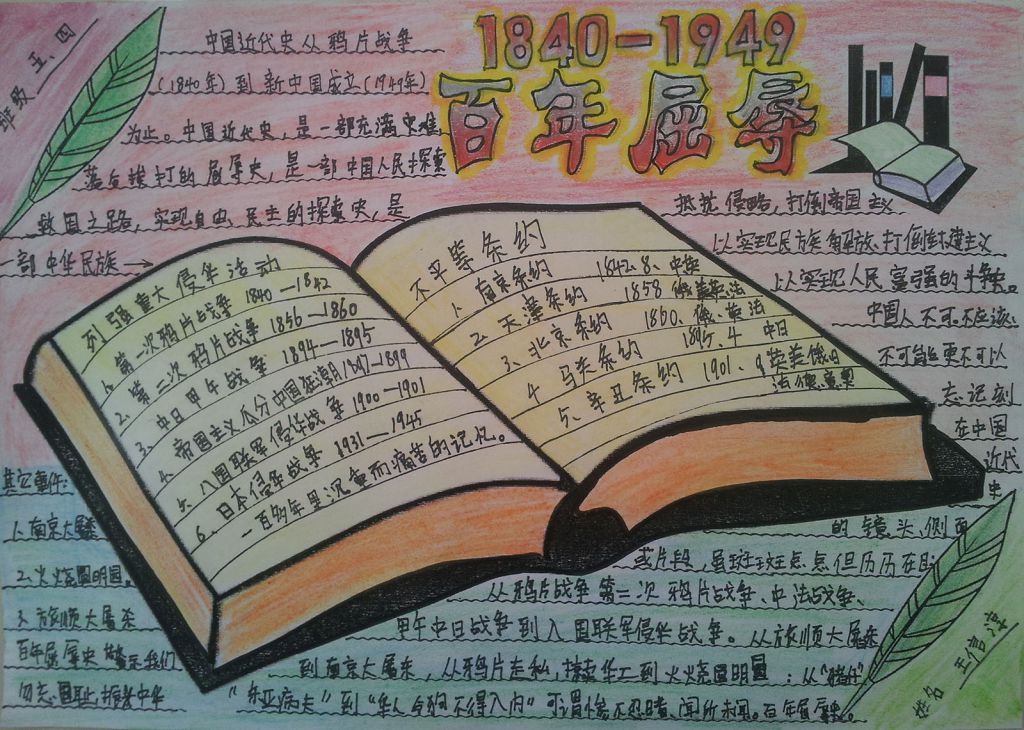 1840-1949
百年屈辱
班级 五、四
中国近代史从鸦片战争
(1840年)到新中国成立(1949年)
为止。中国近代史,是一部充满灾难、
落后挨打的屈辱史,是一部中国人民探索
救国之路,实现自由、民主的探索史,是
一部中华民族→
抵抗侵略,打倒帝国主义
以实现民族解放、打倒封建主义
以实现人民富强的斗争史。
中国人不可、不应该、
不可能更不可以
忘记刻
在中国
近代
史
的镜头、侧面
或片段,虽斑斑点点但历历在目:
从鸦片战争第二次鸦片战争、中法战争、
甲午中日战争到八国联军侵华战争。从旅顺大屠杀
到南京大屠杀,从鸦片走私,掠卖华工到火烧圆明园:从
“东亚病夫”到“华人与狗不得入内”可谓惨不忍睹、闻所未闻。百年屈辱史。
列强重大侵华活动
1、第一次鸦片战争 1840—1842
2、第二次鸦片战争 1856—1860
3、中日甲午战争 1894—1895
4、帝国主义瓜分中国狂潮 1897—1899
5、八国联军侵华战争 1900—1901
6、日本侵华战争 1931—1945
一百多年里沉重而痛苦的记忆。
不平等条约
1、南京条约 1842、8、中英
2、天津条约 1858 俄美英法
3、北京条约 1860、俄、英法
4 马关条约 1895、4 中日
5、辛丑条约 1901、9 英美俄日
法德意奥
其它事件:
1、南京大屠杀
2、火烧圆明园。
3、旅顺大屠杀
百年屈辱史 警示我们
勿忘国耻,振兴中华
姓名 王信淳